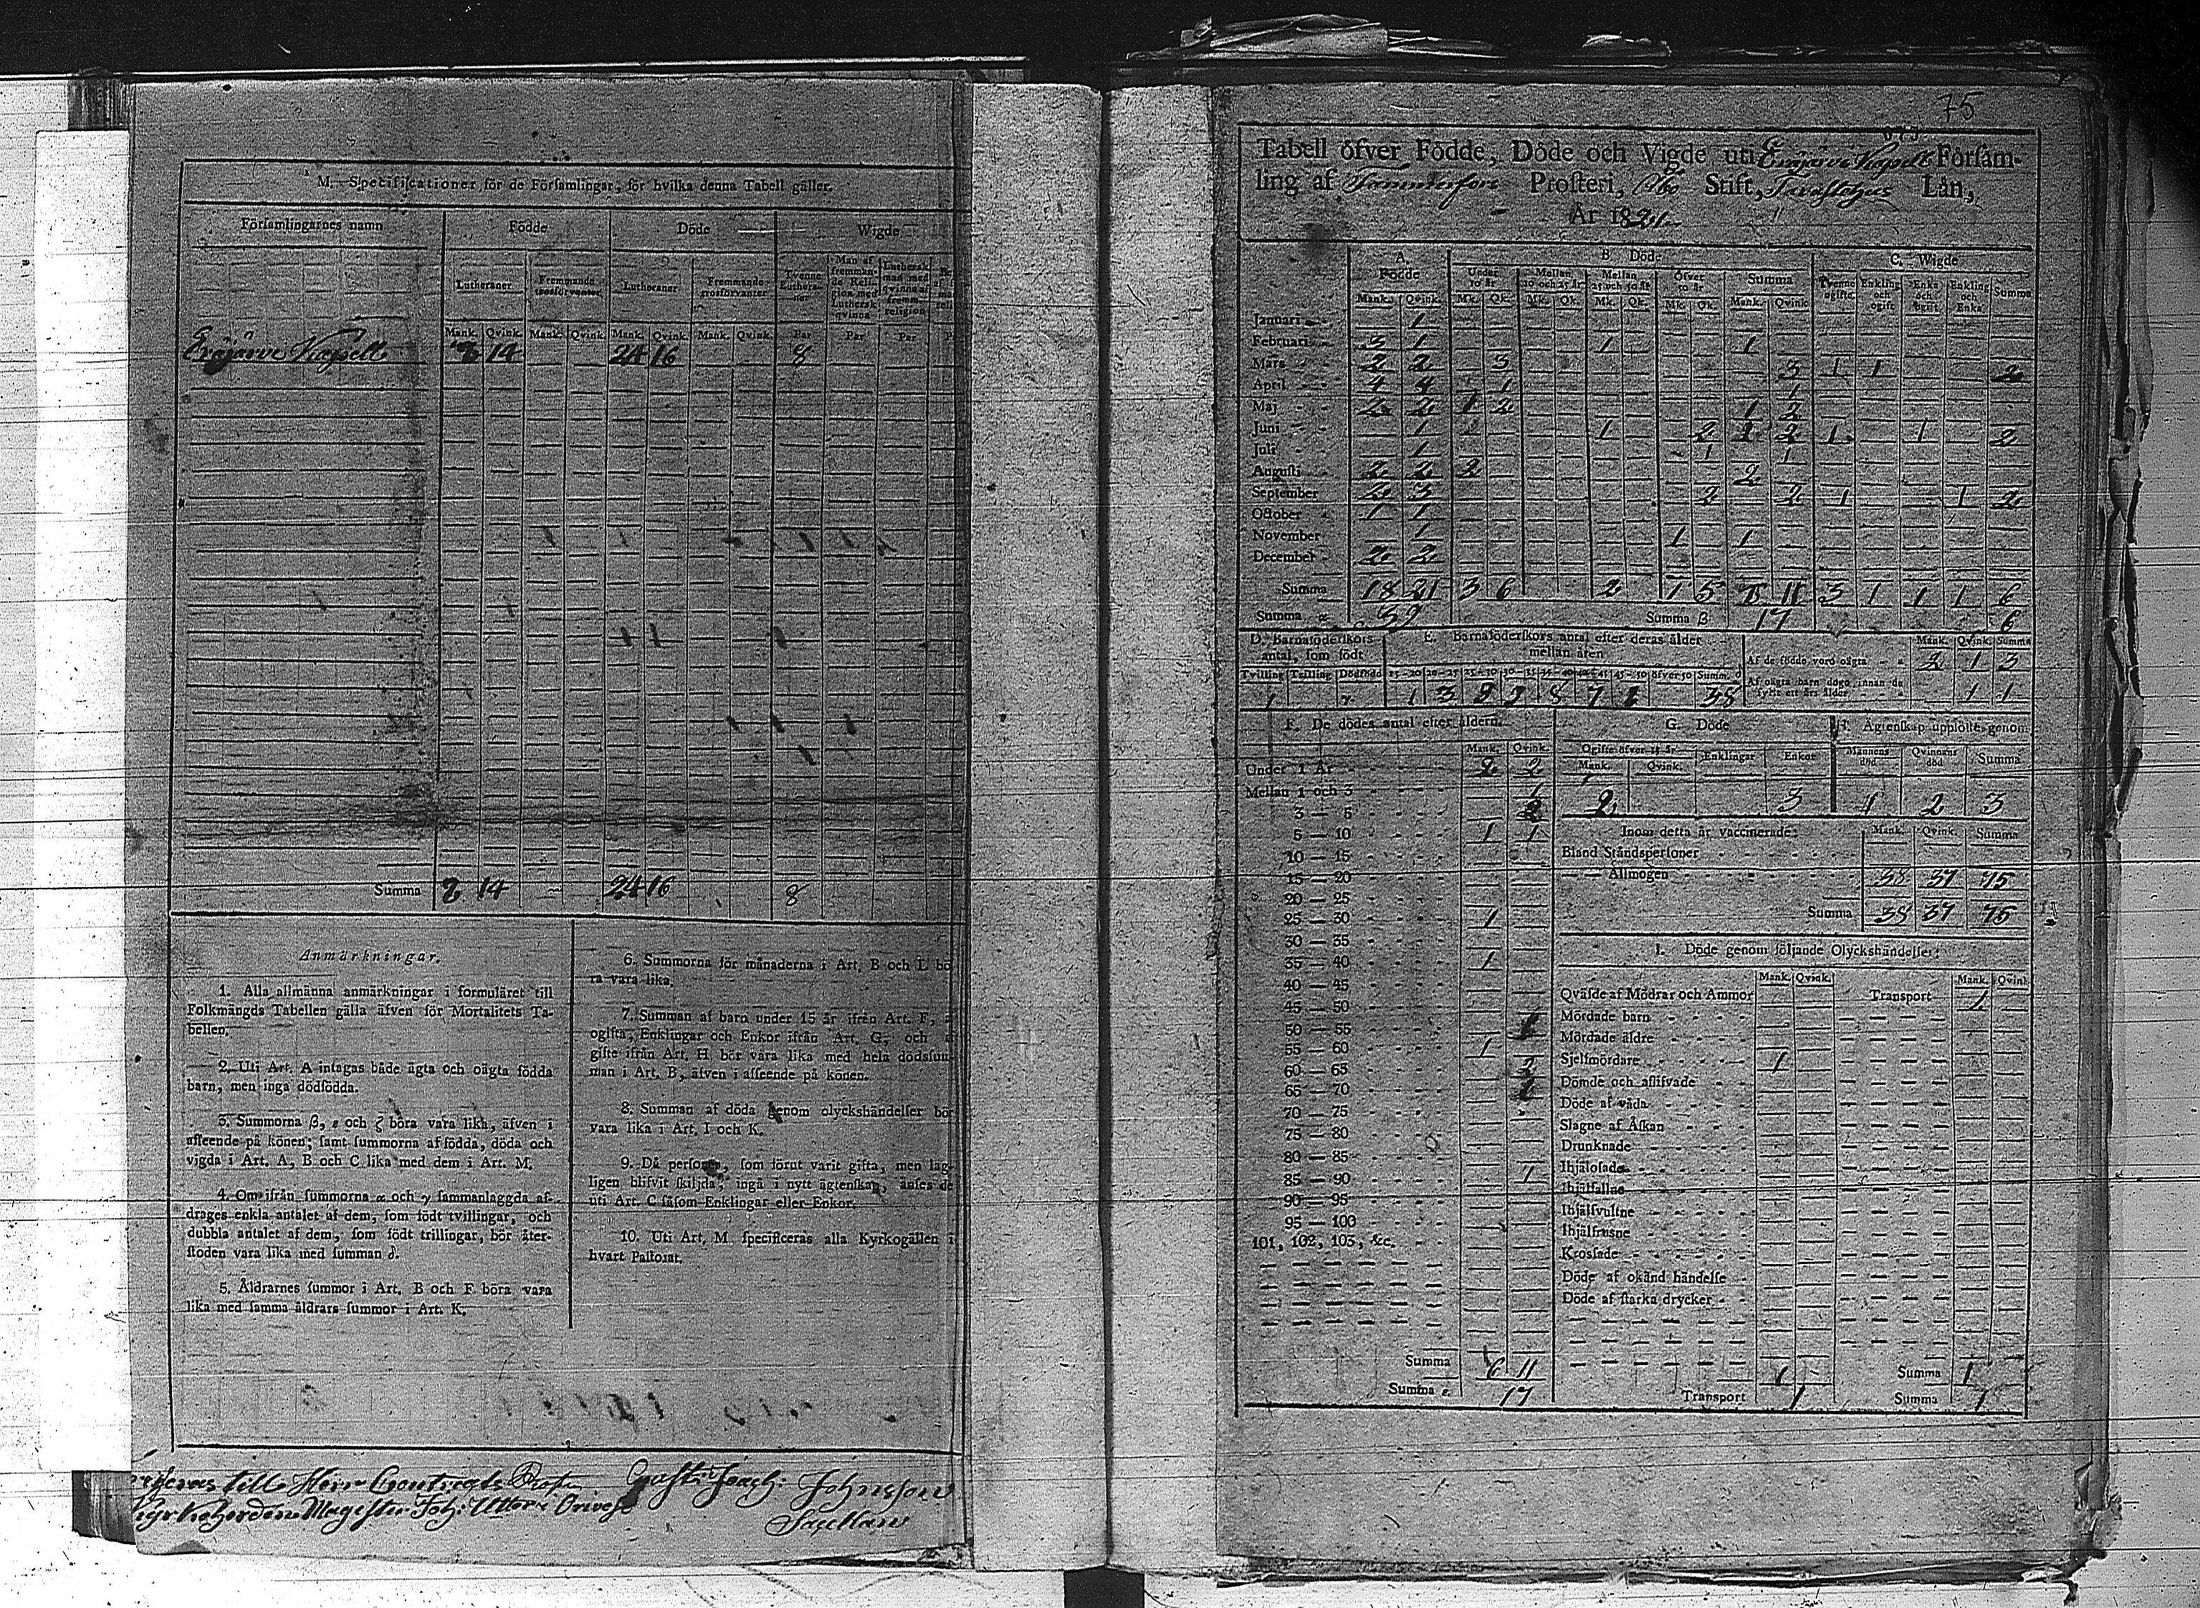 M. Specificationer för de Församlingar, för hvilka denna Tabell gäller.
Församlingarnes namn Födde Döde Wigde
Lutheraner Fremmande trosförvanter Lutheraner Fremmande trosförvanter Twenne Lutheraner Man af fremmande Religion med Luthersk qvinna Luthersk man med qvinna af fremm. religion
Mank. Qvink. Mank. Qvink. Mank. Qvink. Mank. Qvink. Par Par Par
Eräjärvi Kapell 14 24 16 8
Summa 14 24 16 8
Anmärkningar.
1. Alla allmänna anmärkningar i formuläret till
Folkmängds Tabellen gälla äfven för Mortalitets Ta-
bellen.
2. Uti Art. A intagas både ägta och oägta födda
barn, men inga dödfödda.
3. Summorna β, ε och ζ böra vara lika, äfven i
afseende på könen; samt summorna af födda, döda och
vigda i Art. A, B och C lika med dem i Art. M.
4. Om ifrån summorna α och γ sammanlaggda af-
drages enkla antalet af dem, som födt tvillingar, och
dubbla antalet af dem, som födt trillingar, bör åter-
stoden vara lika med summan δ.
5. Åldrarnes summor i Art. B och F böra vara
lika med samma åldrars summor i Art. K.
6. Summorna för månaderna i Art. B och L bö
ra vara lika.
7. Summan af barn under 15 år ifrån Art. F,
ogifta, Enklingar och Enkor ifrån Art. G, och
gifte ifrån Art. H bör vara lika med hela dödssum-
man i Art. B, äfven i afseende på könen.
8. Summan af döda genom olyckshändelser bör
vara lika i Art. I och K.
9. Då personer, som förut varit gifta, men lag-
ligen blifvit skiljda, ingå i nytt ägtenskap, anses de
uti Art. C såsom Enklingar eller Enkor.
10. Uti Art. M specificeras alla Kyrkogällen i
hvart Pastorat.
till Herr Contracts Prosten Gust: Joach: Johnsson
Kyrkoherden Magister Joh: Uttor i Orivesi Sacellan
75
Tabell öfver Födde, Döde och Vigde uti Eräjärvi Kapells Församling
ling af Tammerfors Prosteri, Åbo Stift, Tavastehus Län,
År 1821
A. Födde B. Döde C. Wigde
Under 10 år Mellan 10 och 25 år Mellan 25 och 50 år Öfver 50 år Summa Twenne ogifte Enkling och ogift Enka och ogift Enkling och Enka Summa
Mank. Qvink. Mk. Qk. Mk. Qk. Mk. Qk. Mk. Qk. Mank. Qvink.
Januari 1
Februari 3 1 1 1
Mars 2 2 3 3 1 1 2
April 4 4 1 1
Maj 2 2 1 2 1 2
Juni 1 1 2 2 1 1 2
Juli 1 1 1
Augusti 2 2 2 2
September 2 3 2 2 1 1 2
October 1 1
November 1 1 1
December 2 2
Summa 18 21 3 6 2 1 5 11 3 1 1 1 6
Summa α 39 Summa β 17 6
D. Barnaföderskors antal, som födt
Tvilling Trilling Dödfödd
1
E. Barnaföderskors antal efter deras ålder mellan åren
15-20 20-25 25-30 30-35 35-40 40-45 45-50 öfver 50 Summ. δ
1 3 8 7 38
Mank. Qvink. Summa
Af de födde voro oägta 2 1 3
Af oägta barn dogo innan de fyllt ett års ålder 1 1
F. De dödes antal efter åldern.
Mank. Qvink.
Under 1 År 2 2
Mellan 1 och 3 1
3 — 5 2
5 — 10 1 1
10 — 15
15 — 20
20 — 25
25 — 30 1
30 — 35
35 — 40 1
40 — 45
45 — 50
50 — 55
55 — 60 1
60 — 65
65 — 70
70 — 75
75 — 80
80 — 85
85 — 90 1
90 — 95
95 — 100
101, 102, 103, &c.
Summa 6 11
Summa ε. 17
G. Döde
Ogifte öfver 15 år Enklingar Enkor
Mank. Qvink.
2 3
H. Ägtenskap upplöste genom
Mannens död Qvinnans död Summa
1 2 3
Inom detta år vaccinerade: Mank. Qvink. Summa
Bland Ståndspersoner
— — Allmogen 38 37 75
Summa 38 37 75
I. Döde genom följande Olyckshändelser:
Mank. Qvink. Mank. Qvink.
Qväfde af Mödrar och Ammor Transport 1
Mördade barn
Mördade äldre
Sjelfmördare 1
Dömde och aflifvade
Döde af våda
Slagne af Åskan
Drunknade
Ihjälosade
Ihjälfallne
Ihjälsvultne
Ihjälfrusne
Krossade
Döde af okänd händelse
Döde af starka drycker
1 Summa 1
Transport 1 Summa 1